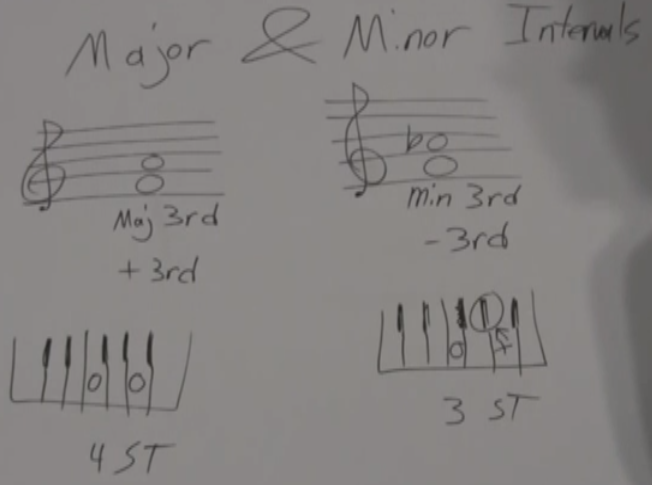 Major & Minor Intervals
Maj 3rd
+ 3rd
4 ST
min 3rd
- 3rd
3 ST